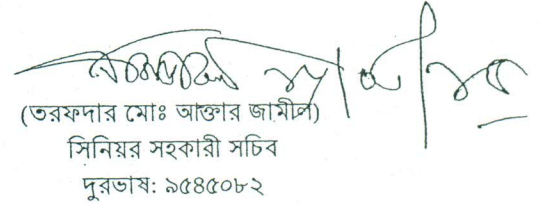 (তরফদার মোঃ আক্তার জামীল)
সিনিয়র সহকারী সচিব
দুরভাষ: ৯৫৪৫০৮২